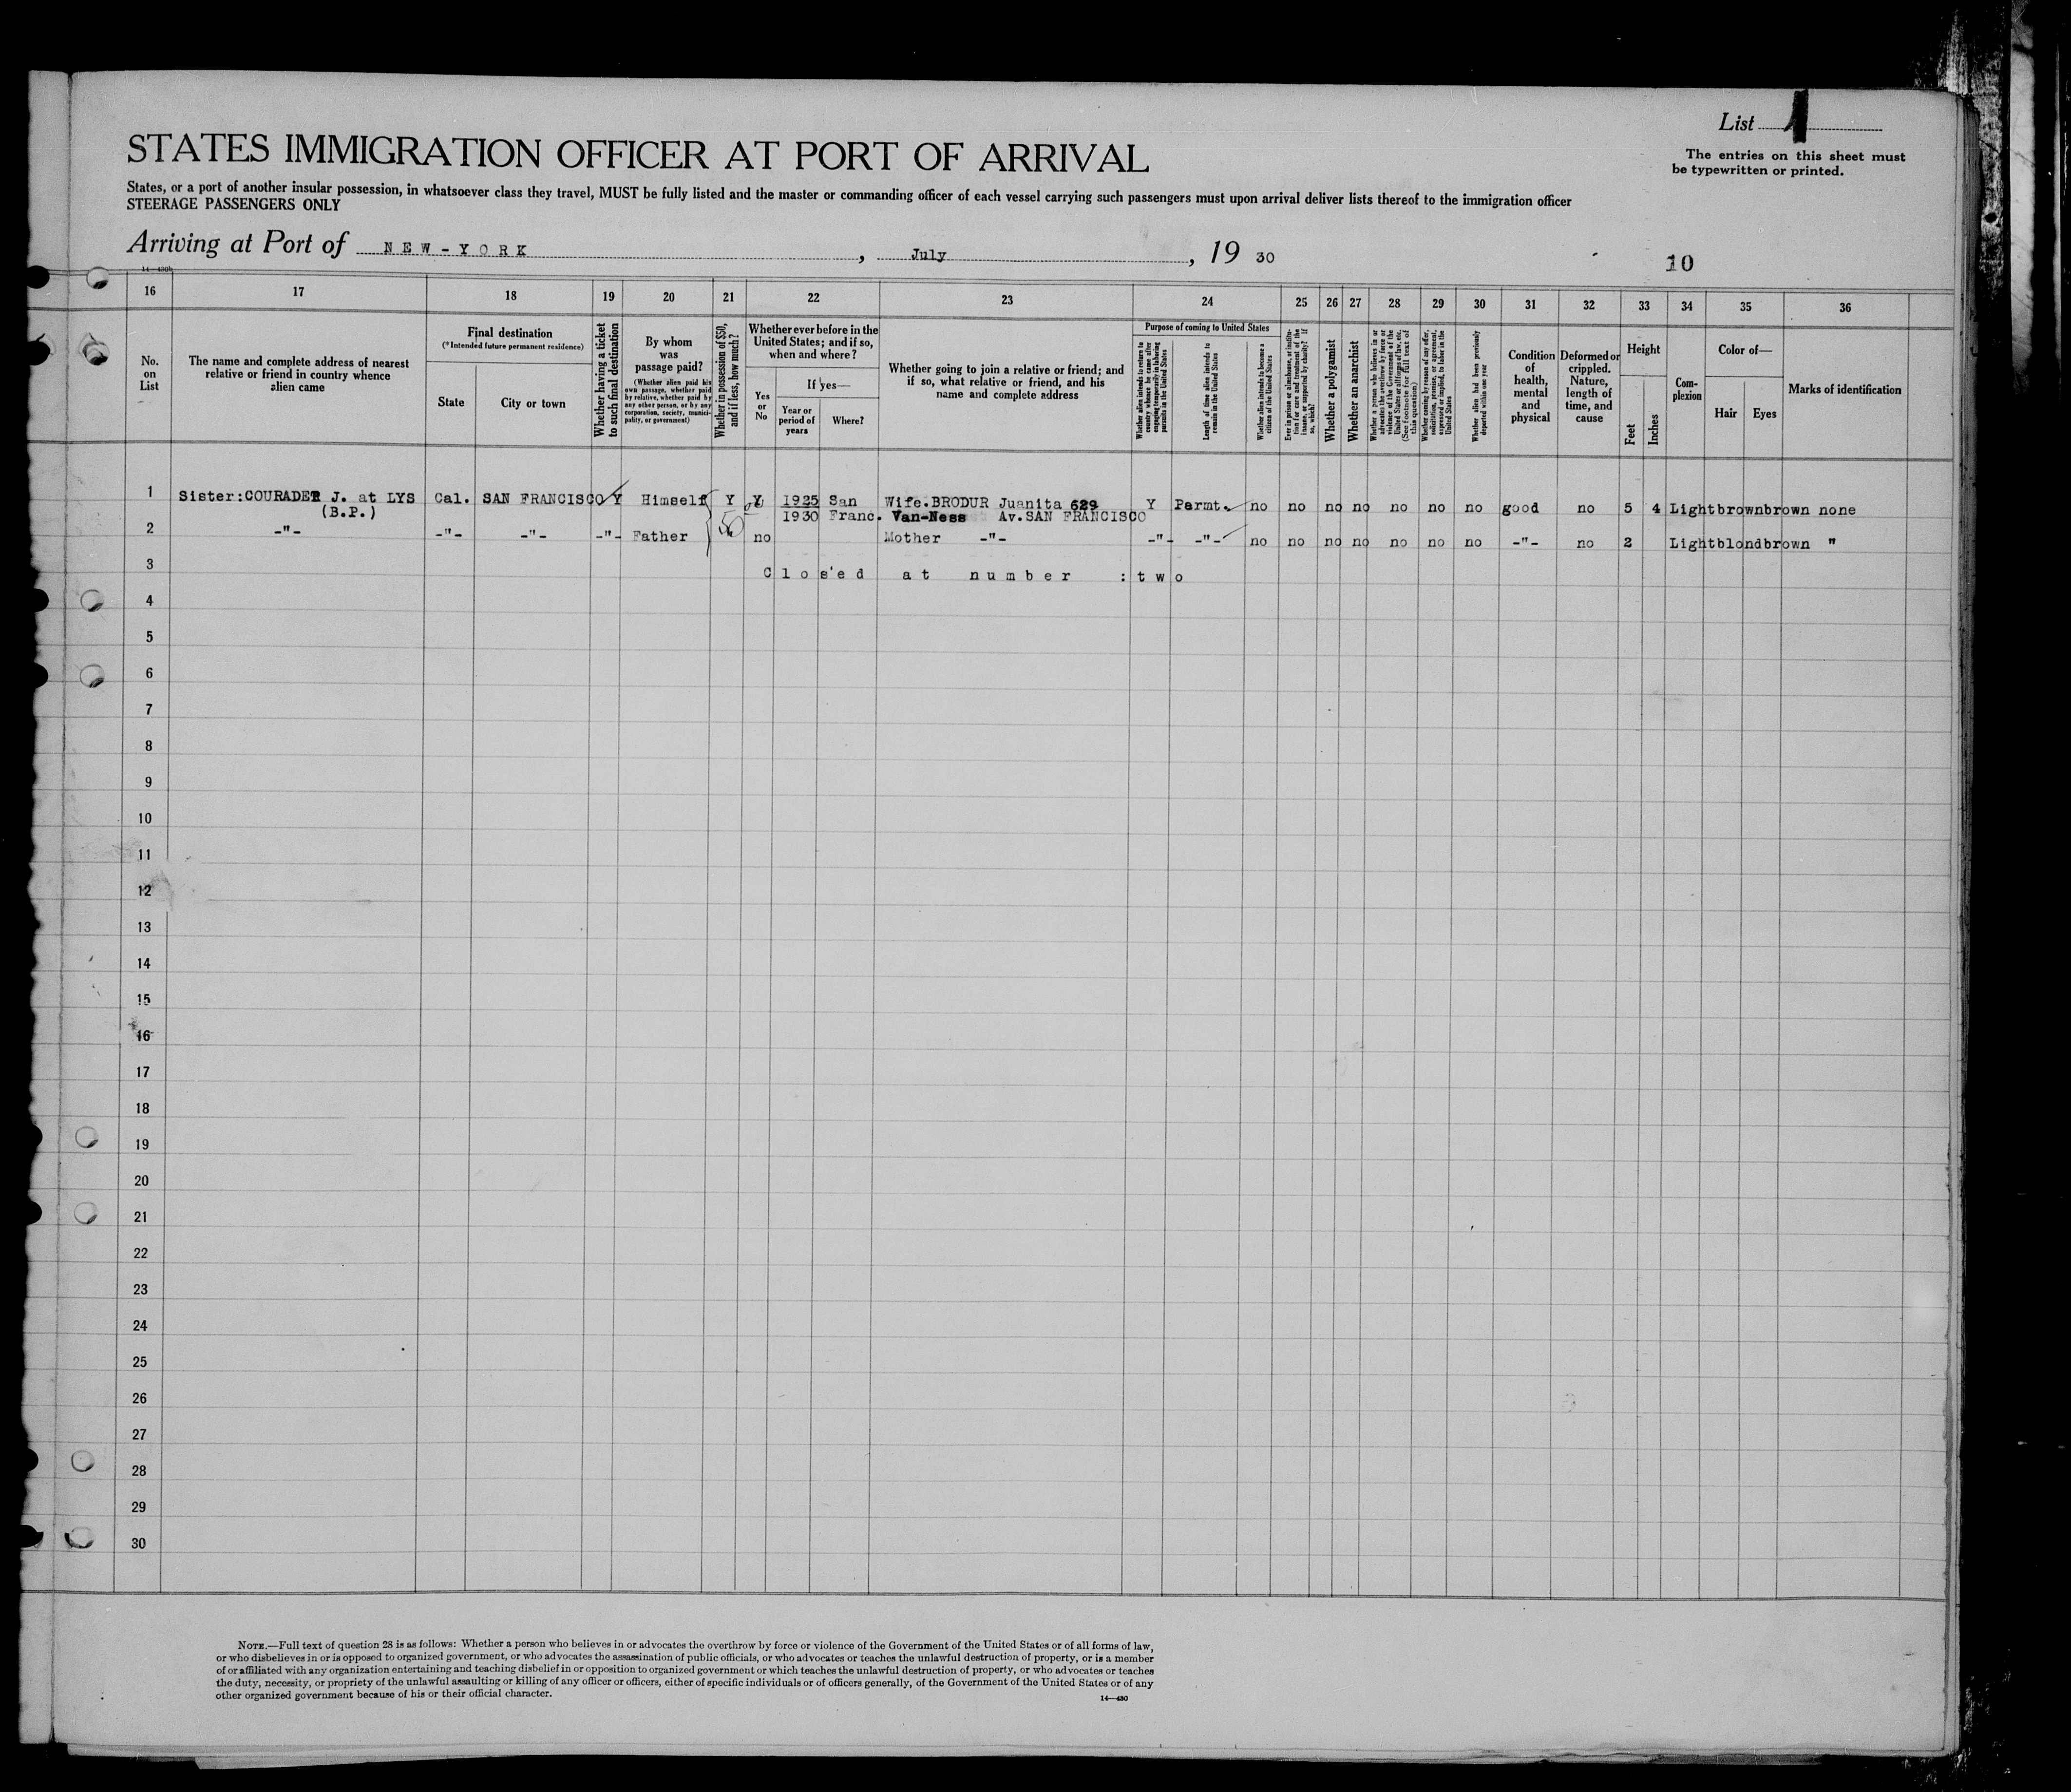 List
The entries on this sheet must
be typewritten or printed.
STATES IMMIGRATION OFFICER AT PORT OF ARRIVAL
States, or a port of another insular possession, in whatsoever class they travel, MUST be fully listed and the master or commanding officer of each vessel carrying such passengers must upon arrival deliver lists thereof to the immigration officer
STEERAGE PASSENGERS ONLY
Arriving at Port of NEW-YORK, July, 19 30
10
16 17 18 19 20 21 22 23 24 25 26 27 28 29 30 31 32 33 34 35 36
No. on List
The name and complete address of nearest
relative or friend in country whence
alien came
Final destination
(*Intended future permanent residence)
State
City or town
Whether having a ticket
to such final destination
By whom
was
passage paid?
(Whether alien paid his
own passage, whether paid
by relative, whether paid by
any other person, or by any
corporation, society, munici-
pality, or government)
Whether in possession of $50,
and if less, how much?
Whether ever before in the
United States; and if so,
when and where?
Yes or No
If yes—
Year or
period of
years
Where?
Whether going to join a relative or friend; and
if so, what relative or friend, and his
name and complete address
Purpose of coming to United States
Whether alien intends to return to
country whence he came after
engaging temporarily in laboring
pursuits in the United States
Length of time alien intends to
remain in the United States
Whether alien intends to become a
citizen of the United States
Ever in prison or almshouse, or institu-
tion for care and treatment of the
insane, or supported by charity? If
so, which?
Whether a polygamist
Whether an anarchist
Whether a person who believes in or
advocates the overthrow by force or
violence of the Government of the
United States or all forms of law, etc.
(See footnote for full text of
this question)
Whether coming by reason of any offer,
solicitation, promise, or agreement,
expressed or implied, to labor in the
United States
Whether alien had been previously
deported within one year
Condition
of
health,
mental
and
physical
Deformed or
crippled.
Nature,
length of
time, and
cause
Height
Feet
Inches
Com-
plexion
Color of—
Hair
Eyes
Marks of identification
1 Sister:COURADET J. at LYS Cal. SAN FRANCISCO Y Himself Y Y 1925 San Wife.BRODUR Juanita 629 Y Permt. no no no no no no no good no 5 4 Light brown brown none
(B.P.) 50 1930 Franc. Van-Ness Av.SAN FRANCISCO
2 -"- -"- -"- -"- Father no Mother -"- -"- -"- no no no no no no no -"- no 2 Light blond brown "
3 Closed at number : two
4
5
6
7
8
9
10
11
12
13
14
15
16
17
18
19
20
21
22
23
24
25
26
27
28
29
30
NOTE.—Full text of question 28 is as follows: Whether a person who believes in or advocates the overthrow by force or violence of the Government of the United States or of all forms of law,
or who disbelieves in or is opposed to organized government, or who advocates the assassination of public officials, or who advocates or teaches the unlawful destruction of property, or is a member
of or affiliated with any organization entertaining and teaching disbelief in or opposition to organized government or which teaches the unlawful destruction of property, or who advocates or teaches
the duty, necessity, or propriety of the unlawful assaulting or killing of any officer or officers, either of specific individuals or of officers generally, of the Government of the United States or of any
other organized government because of his or their official character.
14—430